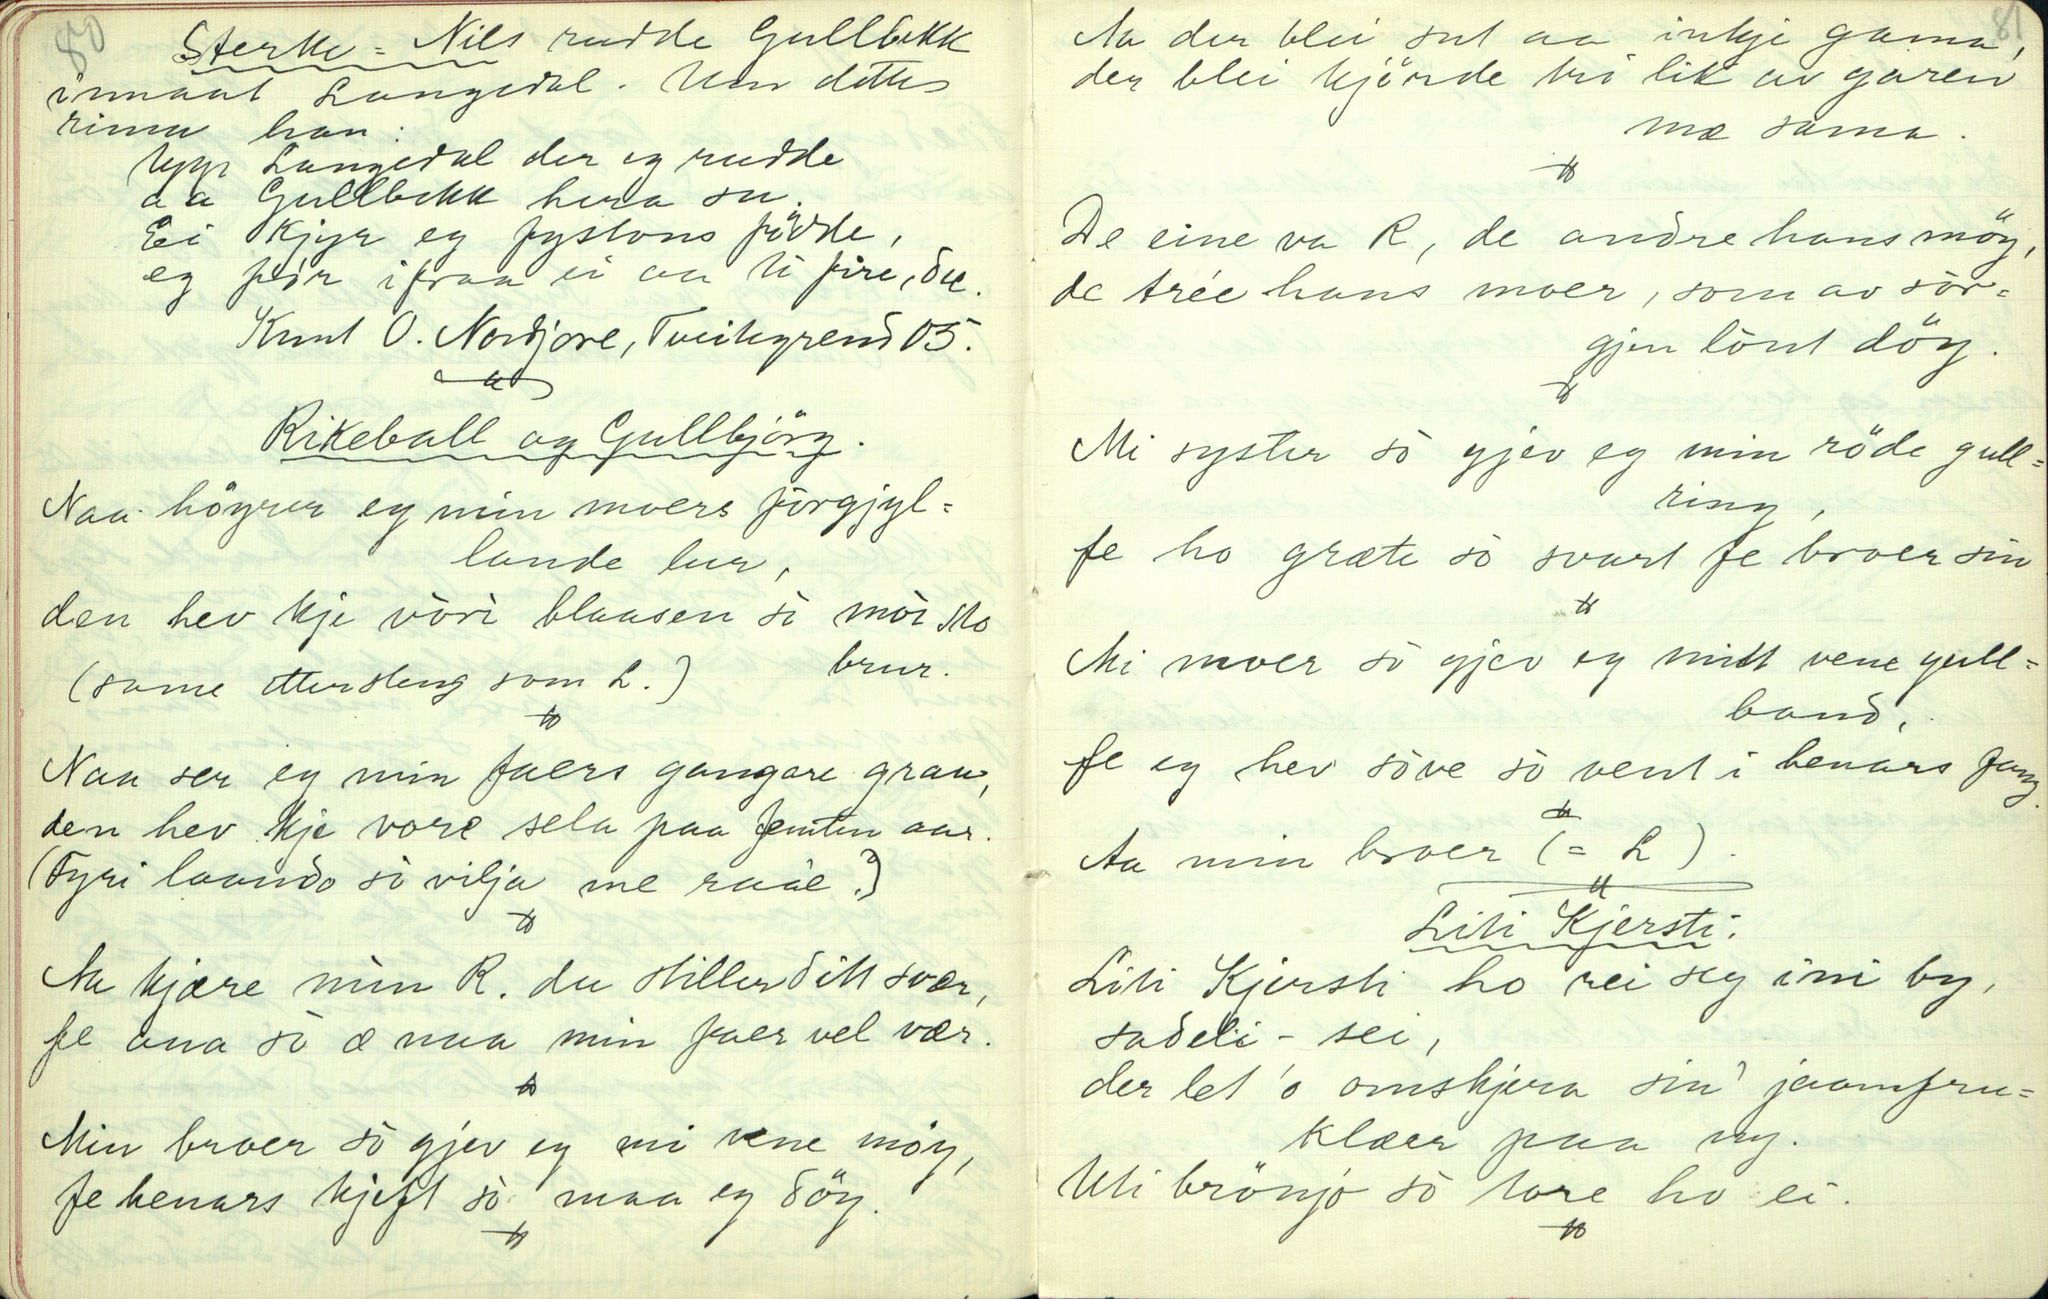 80
Sterke-Nils rudde Gullbekk
innaat Langedal. Um dette
rima han:
Upp Langedal der eg rudde
aa Gullbekk hera su.
Ei kjyr eg fystons födde,
eg fór ifraa ei aa ti fire, du.
Knut O. Nordjore, Tveitegrend 05.
Rikeball og Gullbjörg.
Naa höyrer eg min moers forgjyl-
lande lur,
den hev kje vòri blaasen si mòi sto
brur.
(same ettersleng som L.)
Naa ser eg min faers gangare graa,
den hev kje vore sela paa femten aar.
(Fyri laando so vilja me raae?)
Aa kjære min R. du stiller ditt svær,
fe ana sò æ naa min faer vel vær.
Min broer sò gjev eg mi vene möy,
fe henars kjeft sò maa eg döy.
81
Aa der blei sut aa inkje gama,
der blei kjörde tri lik av garen
mæ sama.
De eine va R, de andre hans möy,
de trée hans moer, som av sòr-
gjen lònt döy.
Mi syster sò gjev eg min röde gull-
ring,
fe ho græte sò svart fe broer sin
Mi moer sò gjev eg mitt vene gull-
band,
fe eg hev sòve sò vent i henars fang.
Aa min broer (= L).
Liti Kjersti.
Liti Kjersti ho rei seg inni by,
sadeli - sei,
der let 'o omskjera sin' jaamfru-
klæer paa ny.
Uti brönjo sò tore ho ei.